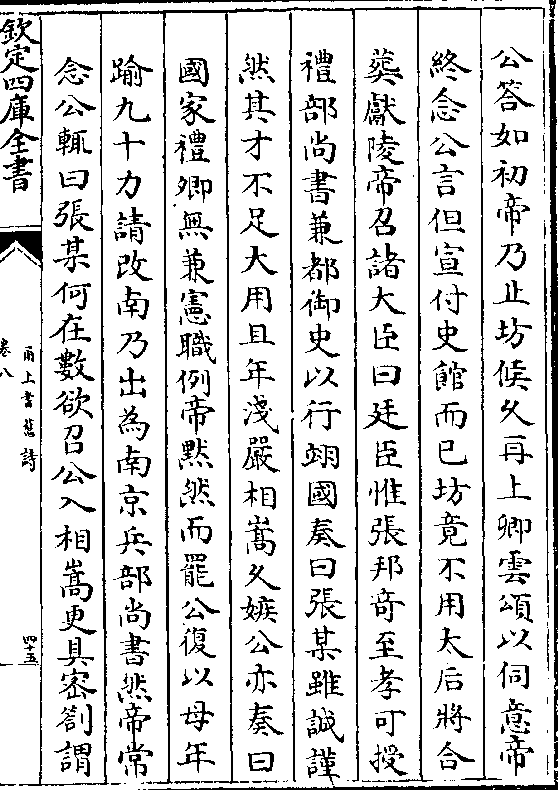 公答如初帝乃止坊候久再上卿雲頌以伺意帝
終念公言但宣付史館而已坊竟不用太后將合
葬獻陵帝召諸大臣曰廷臣惟張邦竒至孝可授
禮部尚書兼都御史以行翊國奏曰張某雖誠謹
然其才不足大用且年淺嚴相嵩久嫉公亦奏曰
國家禮卿無兼憲職例帝黙然而罷公復以母年
踰九十力請改南乃出為南京兵部尚書然帝常
念公輒曰張某何在數欲召公入相嵩更具宻劄謂
欽定四庫全書
甬上耆舊詩
卷八
四十五